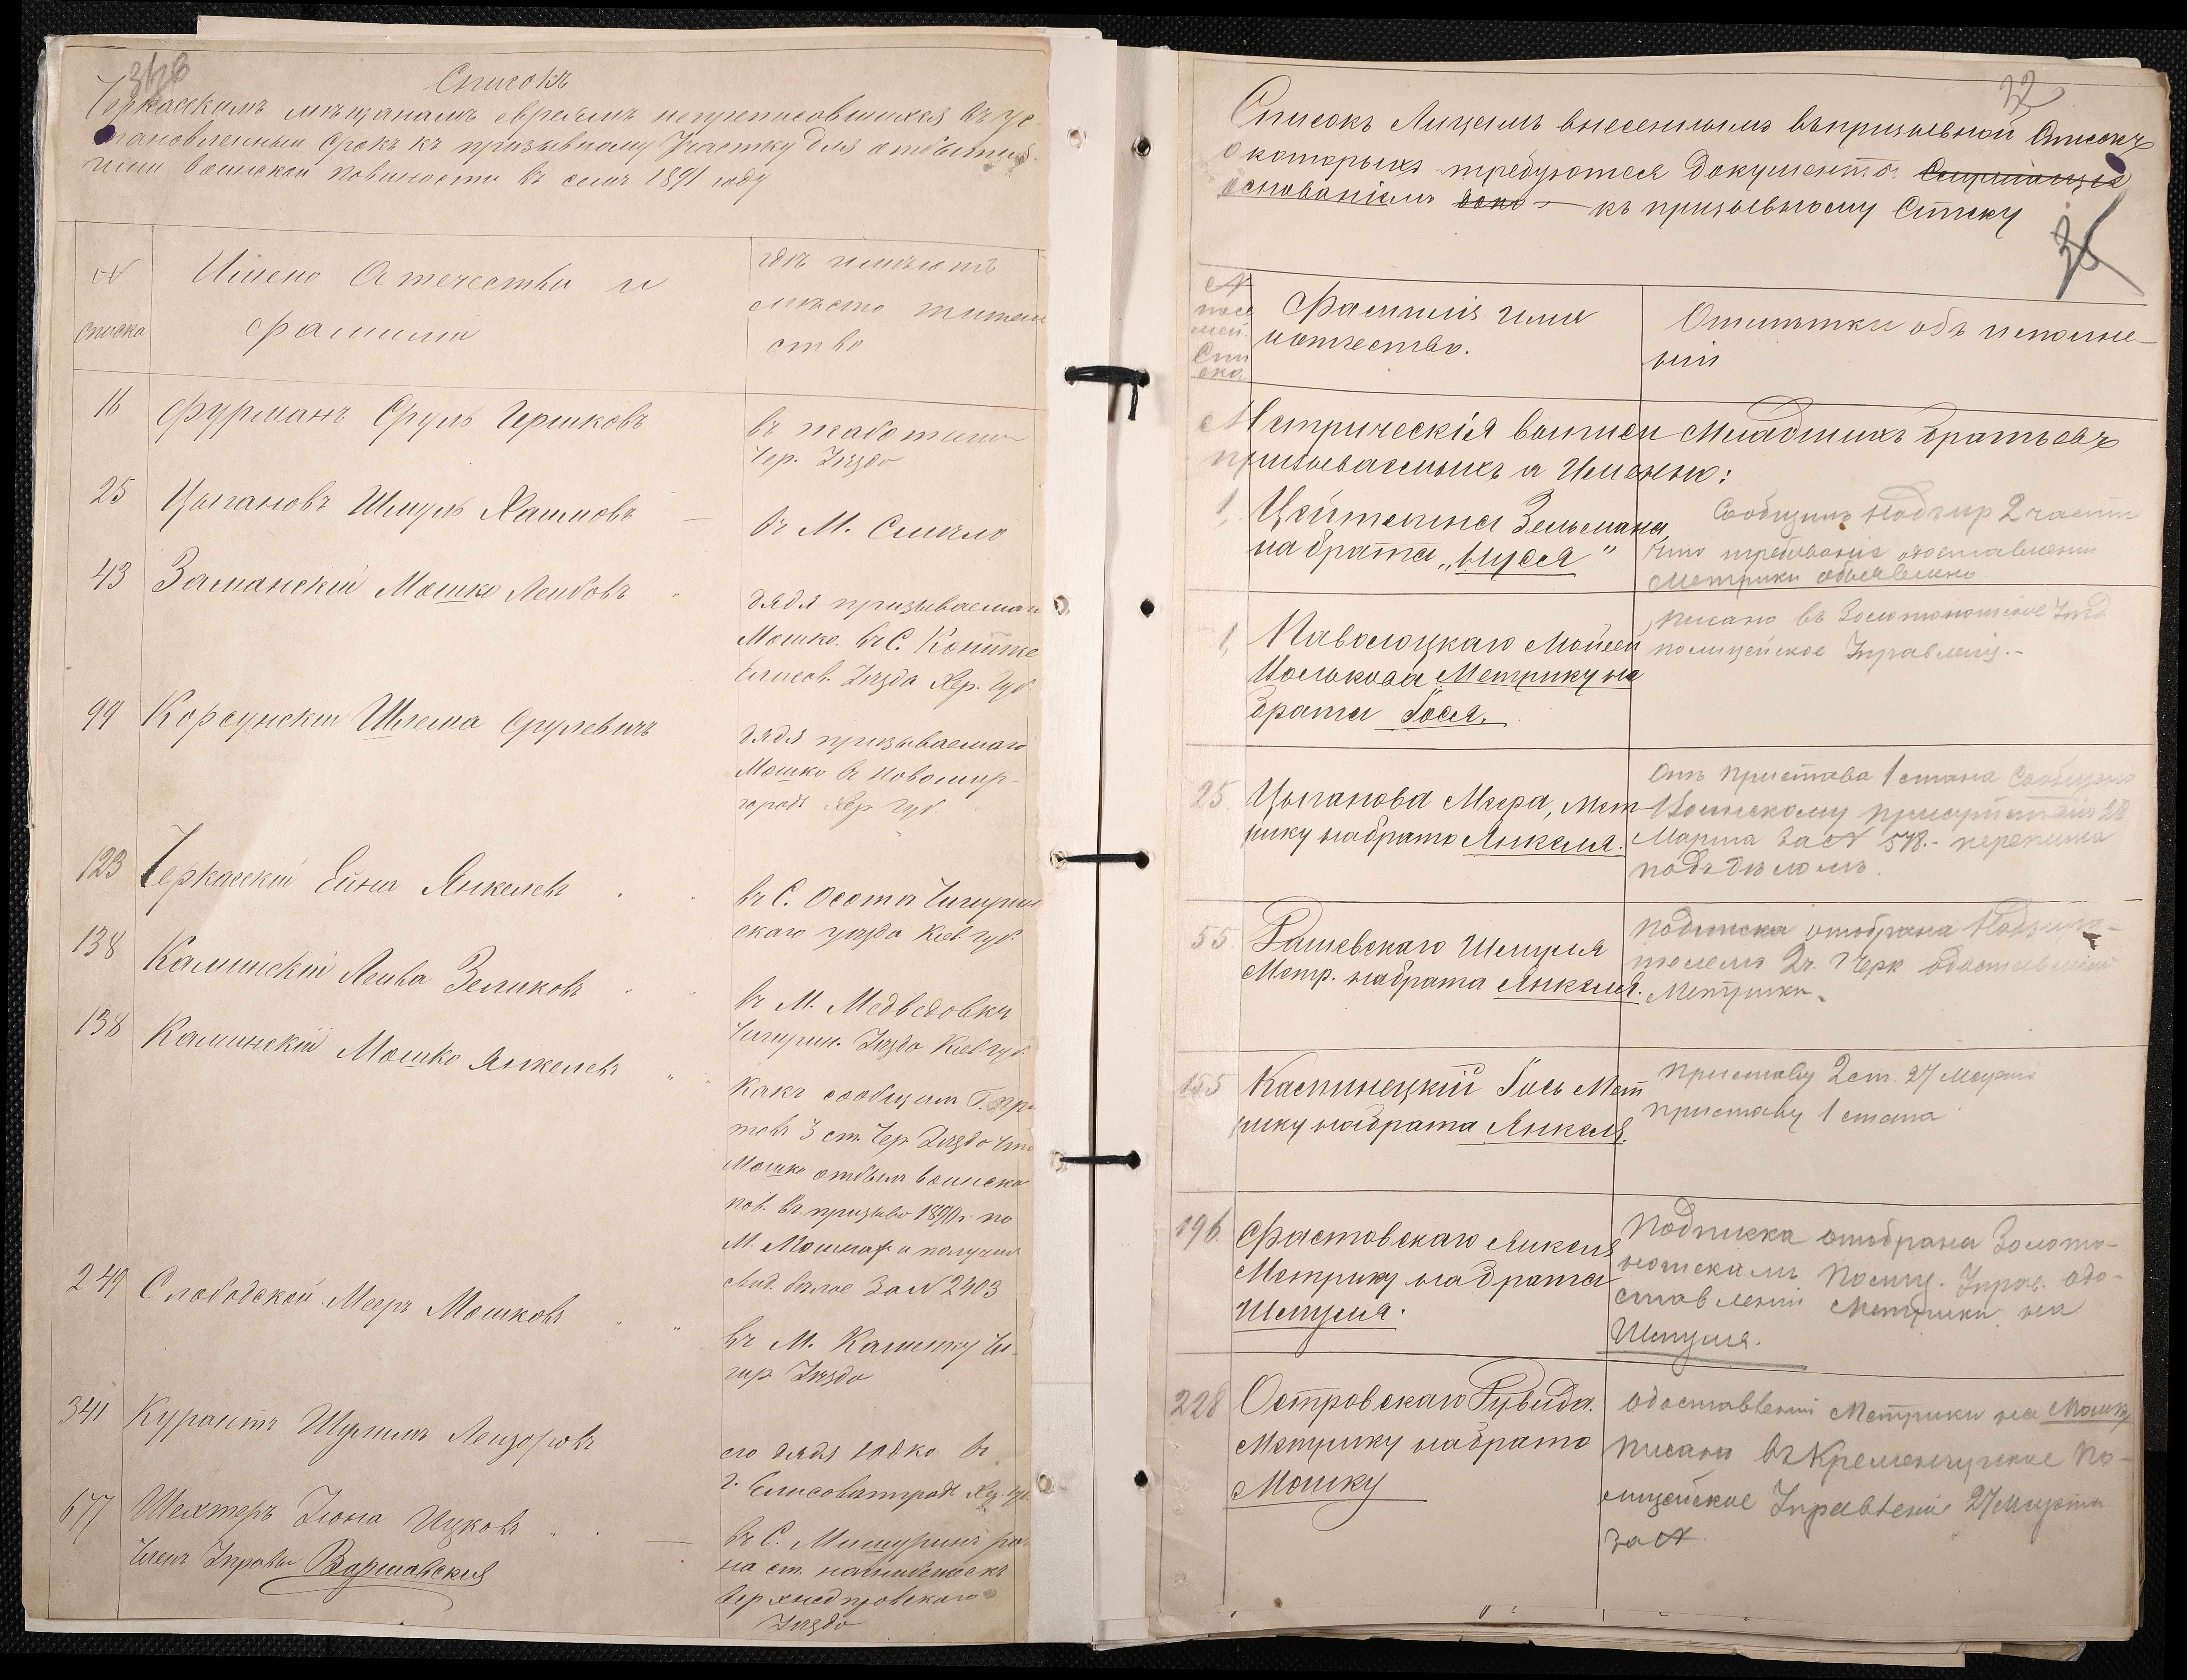 Списокъ
Черкасскимъ мѣщанамъ евреямъ неприписовшихся въ ус-
тановленный срокъ къ призывному Участку для отбытия
воинской повинности въ семъ 1891 году
№
списка
Имено Отечества и
фамилии
гдѣ имѣютъ
мѣсто житель
ство
16 Фурманъ Сруль Гершковъ
въ Жаботинѣ
Чер. Уѣзда
25 Цыгановъ Шмуль Хаимовъ
въ М. Смѣло
43 Заманскій Мошко Лейбовъ
дядя призываемаго
Мошко. въ С.
Елисов. Уѣзда Хер. Губ.
99 Корсунскій Шлема Срулевичъ
дядя призываемаго
Мошко въ Новомир-
городѣ Хер. Губ.
123 Черкасскій Ейна Янкелевъ
въ С. Осота Чигирин
скаго уѣзда Кіев. губ.
138 Каминскій Лейба Зеликовъ
въ М. Медведовкѣ
Чигирин. Уѣзда Кіев. губ.
138 Каминскій Мошко Янкелевъ
Какъ сообщилъ Г. при
ставъ 3 ст. Чер. Уѣзда что
Мошко отбылъ воинску
пов. въ призывъ 1890 г. по
М. Мошнах и получилъ
свид. бѣлое За № 2403
249 Слободской Мееръ Мошковъ
въ М. Каменку Чи-
гир. Уѣзда
341 Курантъ Шулимъ Лейзоровъ
его дядя Юдко въ
г. Елисоветградѣ Хер. губ.
677 Шехтеръ Іона Ицковъ
въ С. Мишуринъ ро
на ст.
Верхнеднѣпровскаго
Уѣзда
Членъ Управы Варшавскій
32
Списокъ Лицамъ внесеннымъ въ призывной Списокъ
о которыхъ требуются документъ
основаніемъ къ призывному Списку
36
№
посе
мей.
Спи
ска
Фамилія имя
и отчество.
Отмѣтки объ исполне-
ніи
Метрическія выписи Младшихъ братьевъ
призываемыхъ а Именно:
1, Цейтлина Зельмана,
на брата „Мусея"
Сообщилъ Надзир 2 части
что требованіе о доставленіи
Метрики объявлено
1, Паволоцкаго Мойсея
Іоськова Метрику на
брата Гося.
писано въ Золотоношское Уѣзд
полицейское Управленіе.-
25. Цыганова Меера, Мет-
рику на брата Янкеля.
Отъ Пристава 1 стана сообщено
Воинскому присутствію 28
Марта За № 578.- переписка
подъ дѣломъ.
55. Рашевскаго Шмуля
Метр. на брата Янкеля.
Подписка отобрана Надзира-
телемъ 2 ч. Черк о доставленіи
Метрики.
155 Каспинецкій Гось Мет
рику на брата Янкеля.
Приставу 2 ст. 27 Марта
приставу 1 стана
196. Фастовскаго Янкеля
Метрику на брата
Шмуля.
Подписка отобрана Золото-
ношскимъ Полиц. Управ. о до-
ставленіи Метрики на
Шмуля.
228 Островскаго Рувида.
Метрику на брата
Мошку
о доставленіи Метрики на Мошку
писано въ Кременчугское По-
лицейское Управленіе 27 Марта
за №